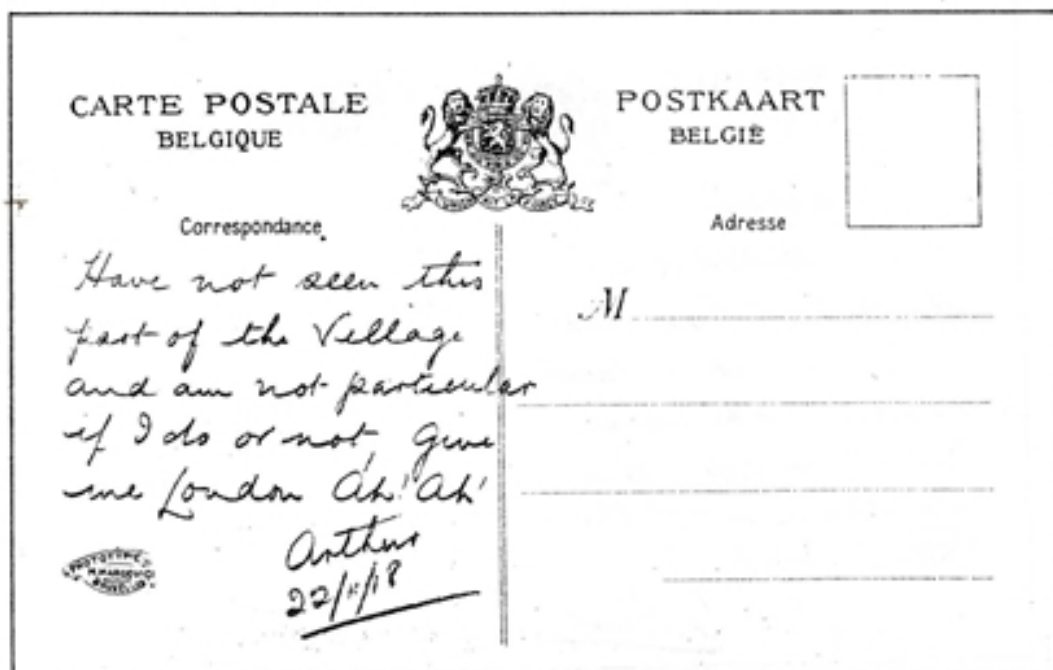 CARTE POSTALE
BELGIQUE
POSTKAART
BELGIË
Correspondance
Adresse
Have not seen this
part of the Village
and am not particular
if I do or not, Give
me London Ah! Ah!
Arthur
22/11/18
M